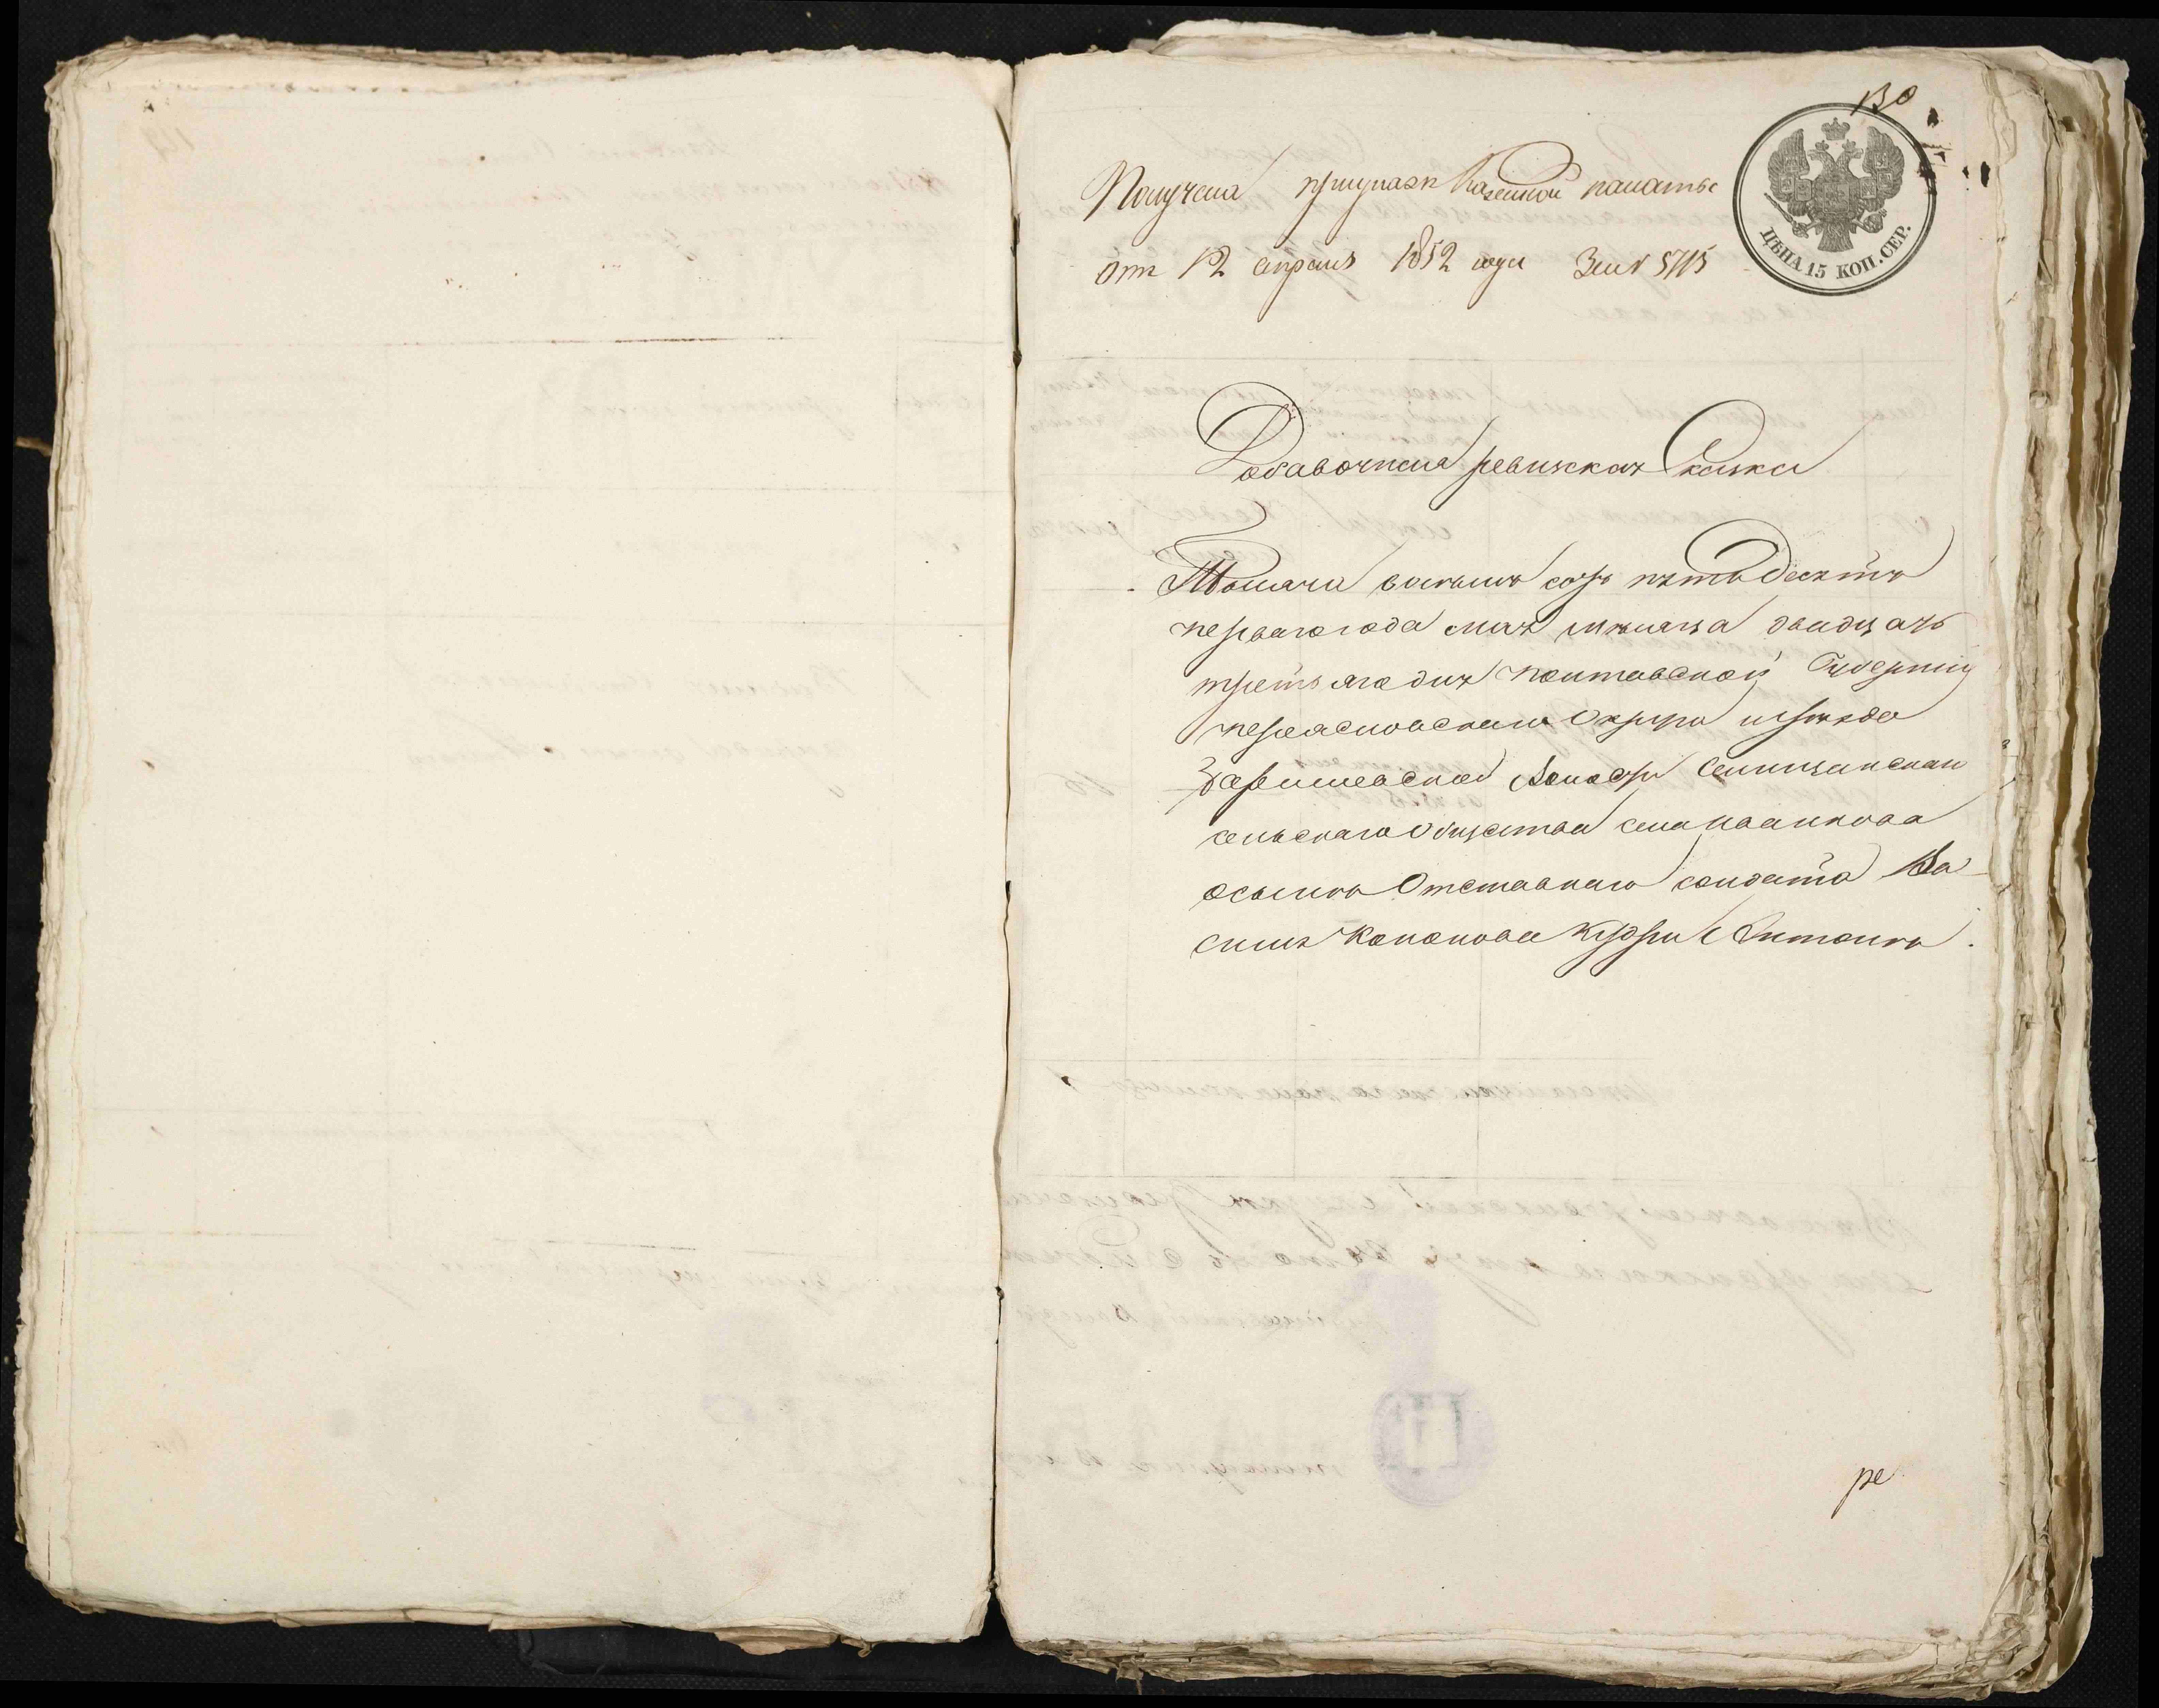 130
ЦѢНА 15 КОП. СЕР.
Получена при указѣ Казенной палаты
отъ 12 апреля 1852 года за № 5715
Добавочная ревизская Сказка
Тысяча восемь сотъ пятьдесятъ
перваго года мая мѣсяца двадцать
третьяго дня Полтавской Губерніи
Переясловскаго Округа и уѣзда
волости
сельскаго Общества села Иванкова
о сынѣ Отставнаго солдата Ва-
силя Кононова Кудри Антонѣ.
ре